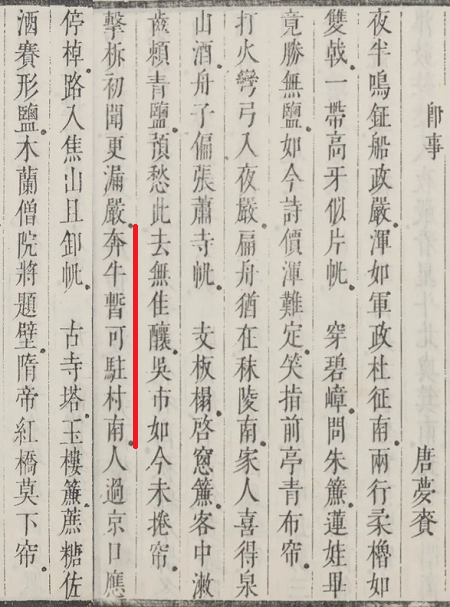 即事 唐夢賚
夜半鳴鉦船政嚴。渾如軍政杜征南。兩行柔櫓如
雙戟。一帶高牙似片帆。 穿碧嶂。問朱簾。蓮娃畢
竟勝無鹽。如今詩價渾難定。笑指前亭青布帘。
打火彎弓入夜嚴。扁舟猶在秣陵南。家人喜得泉
山酒。舟子偏張蕭寺帆。 支板榻。啓窻簾。客中漱
齒頼青鹽。預愁此去無佳釀。吳市如今未捲帘。
擊柝初聞更漏嚴。奔牛暫可駐村南。人過京口應
停棹。路入焦山且卸帆。 古寺塔。玉樓簾。蔗糖佐
酒賽形鹽。木蘭僧院將題壁。隋帝紅橋莫下帘。